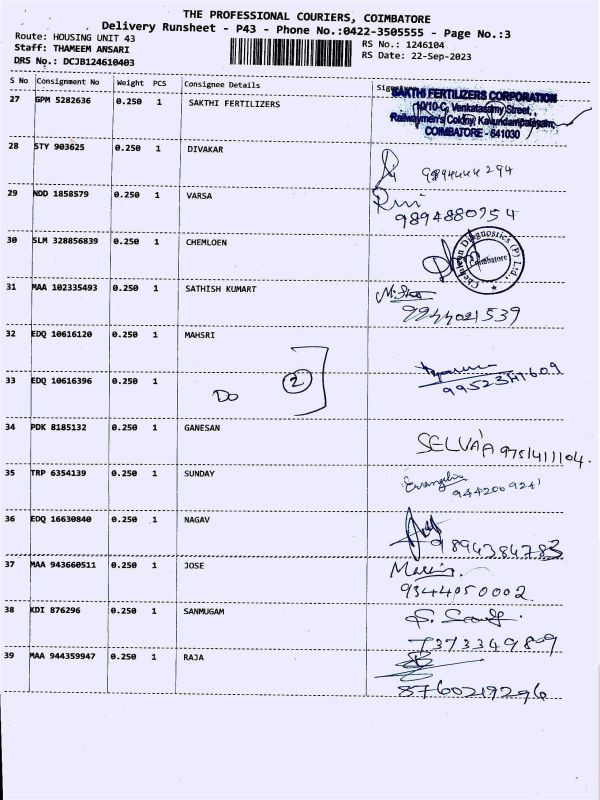 THE PROFESSIONAL COURIERS, COIMBATORE
Delivery Runsheet - P43 - Phone No.:0422-3505555 - Page No.:3
Route: HOUSING UNIT 43 RS No.: 1246104
Staff: THAMEEM ANSARI RS Date: 22-Sep-2023
DRS No.: DCJB124610403
S No Consignment No Weight PCS Consignee Details
27 GPM 5282636 0.250 1 SAKTHI FERTILIZERS
SAKTHI FERTILIZERS CORPORATION
10/10-C, Venkatasamy Street,
Railwaymen's Colony, Kavundampalayam,
COIMBATORE - 641030
28 STY 903625 0.250 1 DIVAKAR
9894444294
29 NDD 1858579 0.250 1 VARSA
9894880754
30 SLM 328856839 0.250 1 CHEMLOEN
Diagnostics (P) Ltd.,
Coimbatore
31 MAA 102335493 0.250 1 SATHISH KUMART
9944021539
32 EDQ 10616120 0.250 1 MAHSRI
33 EDQ 10616396 0.250 1 Do 2
9952347609
34 PDK 8185132 0.250 1 GANESAN
SELVA 9751411104.
35 TRP 6354139 0.250 1 SUNDAY
9442069241
36 EDQ 16630840 0.250 1 NAGAV
9894384783
37 MAA 943660511 0.250 1 JOSE
9344050002
38 KDI 876296 0.250 1 SANMUGAM
7373349809
39 MAA 944359947 0.250 1 RAJA
8760219296